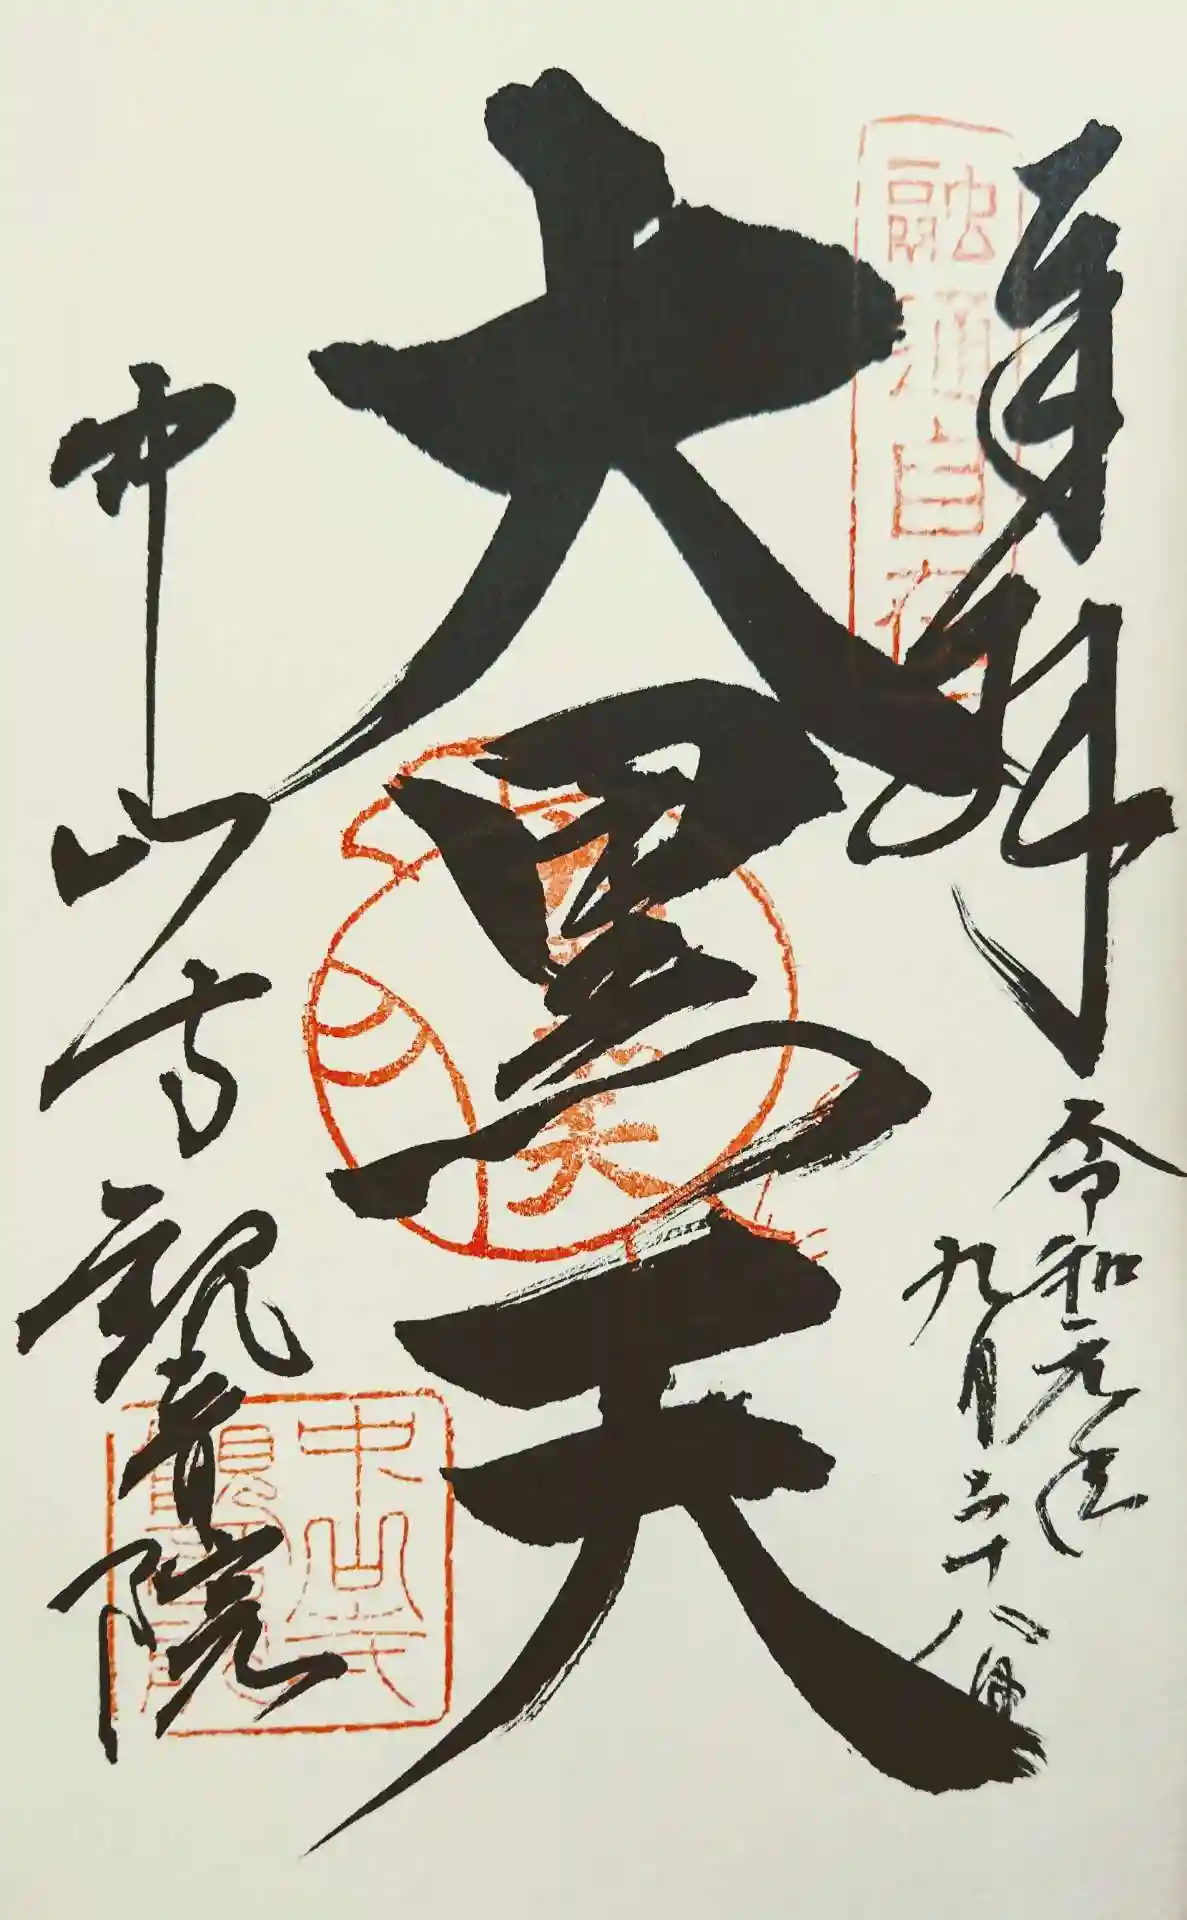 奉拝
融通自在
令和元年
九月二十八日
大黒天
中山寺
観音院
中山寺
観音院